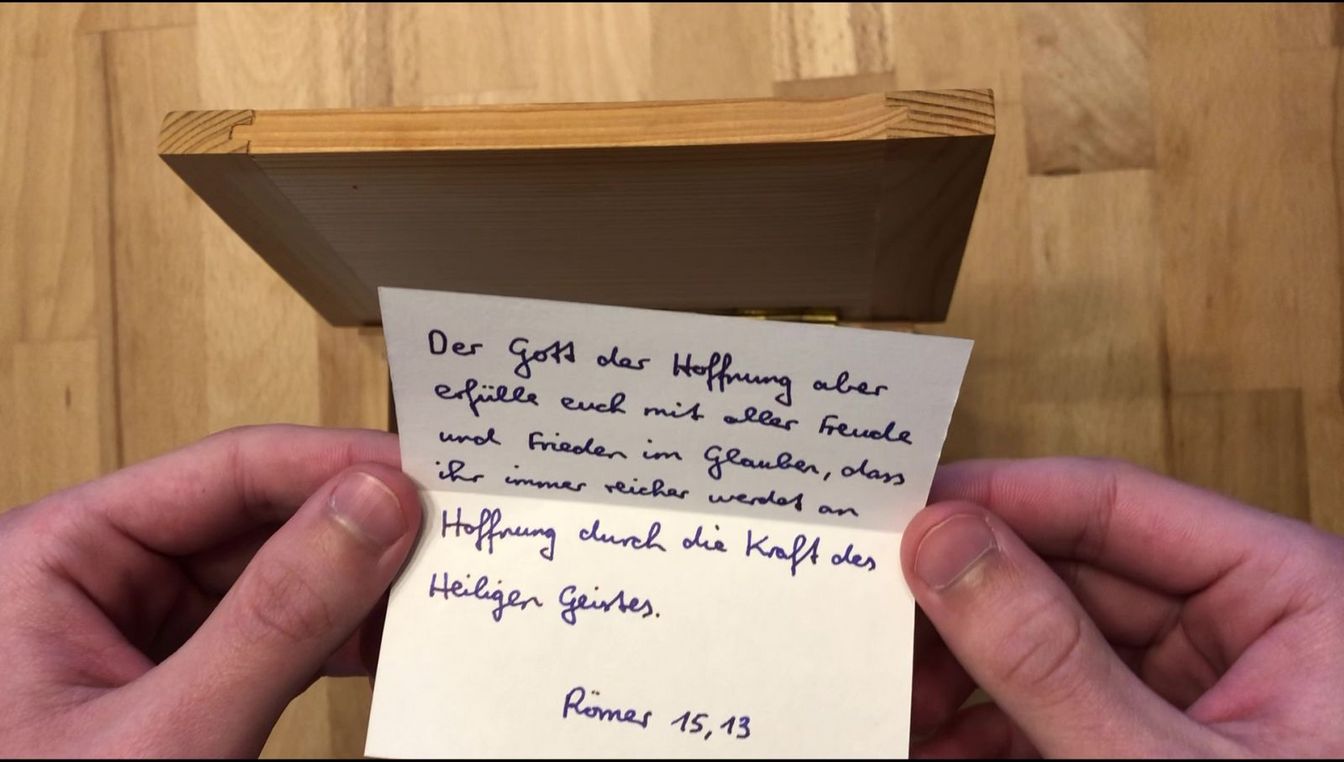 Der Gott der Hoffnung aber
erfülle euch mit aller Freude
und Frieden im Glauben, dass
ihr immer reicher werdet an
Hoffnung durch die Kraft des
Heiligen Geistes.
Römer 15,13